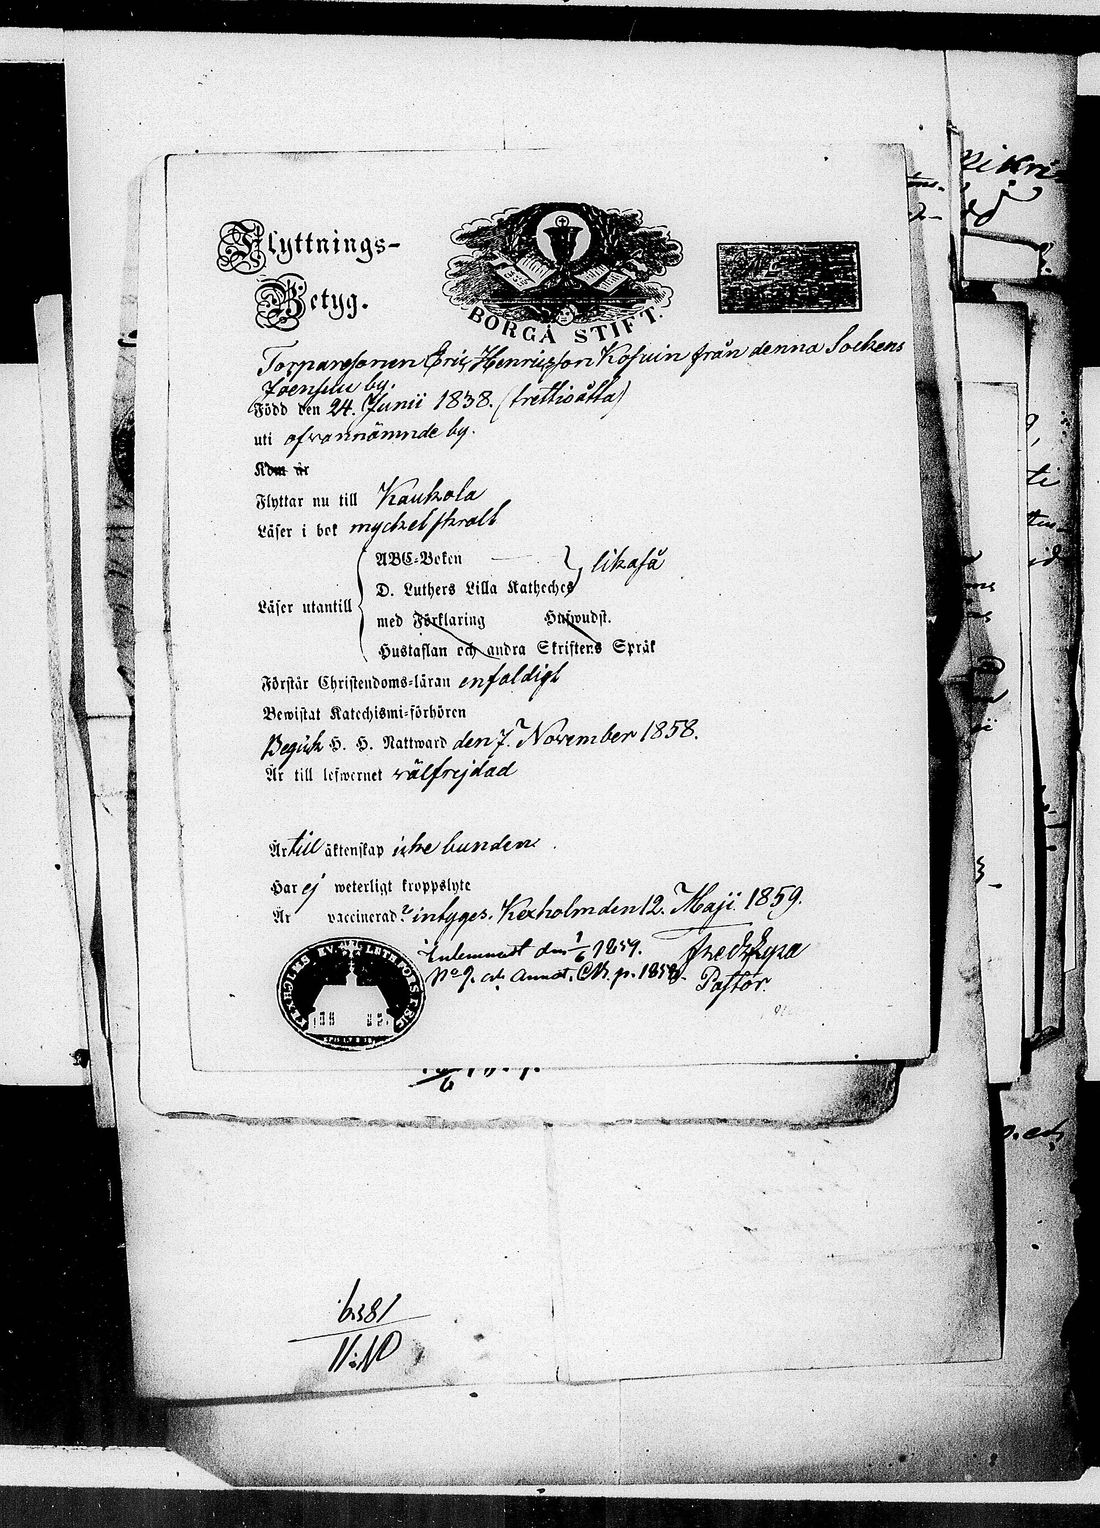 Flyttnings-
Betyg.
BORGÅ STIFT.
Torparesonen Eric Henricsson Kosuin från denna Sockens
Joensuu by.
Född den 24. Junii 1838. (trettioåtta)
uti ofvannämnde by.
Kom år
Flyttar nu till Kaukola
Läser i bok mycket svalt
ABC-Boken
D. Luthers Lilla Katheches } likaså
Läser utantill
med Förklaring Hufwudst.
Hustaflan och andra Skriftens Språk
Förstår Christendoms-läran enfaldigt
Bewistat Katechismi-förhören
Begick H. H. Nattward den 7. November 1858.
Är till lefwernet välfrejdad
Är till äktenskap icke bunden
Har ej weterligt kroppslyte
Är vaccinerad? intyges. Kexholm den 12. Maji 1859.
Inlemnadt den 1/6 1859.
No 9. ad. Annot. CB. p. 1859.
Pastor.
KEXHOLMS EV. LUTH. FÖRS. SIG
6381